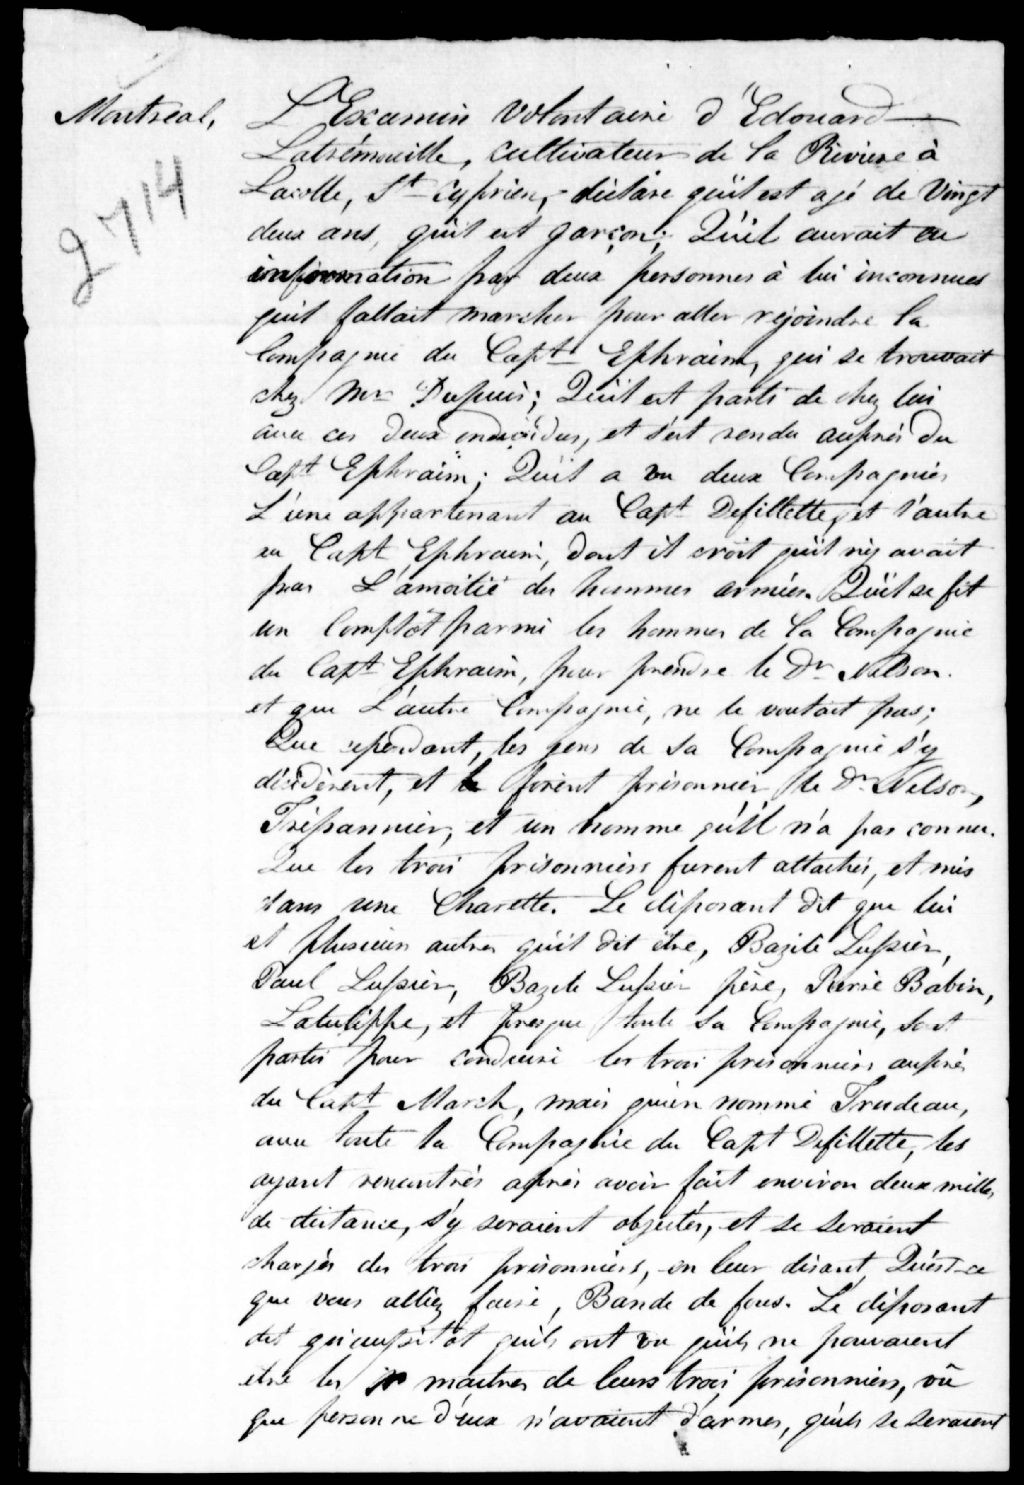 Montreal,
2714
L'Examin Volontaire d'Edouard
Latrémouille, cultivateur de la Riviere à
Lacolle, St Cyprien, déclare qu'il est agé de Vingt
deux ans, qu'il est garçon; Qu'il aurait eu
information par deux personnes à lui inconnues
qu'il fallait marcher pour aller rejoindre la
Compagnie du Capt Ephraim, qui se trouvait
chez Mr Dupuis; Qu'il est parti de chez lui
avec ces deux individus, et s'est rendu auprès du
Capt Ephraïm; Qu'il a vu deux Compagnies
L'une appartenant au Capt Defillette, et l'autre
au Capt Ephraim, dont il croit qu'il n'y avait
pas L'amoitié des hommes armés. Qu'il se fit
un Complôt parmi les hommes de la Compagnie
du Capt Ephraim, pour prendre le Dr Nelson.
et que L'autre Compagnie, ne le voulait pas;
Que cependant, les gens de sa Compagnie s'y
décidèrent, et firent prisonnier le Dr Nelson,
Trépannier, et un homme qu'il n'a pas connu.
Que les trois prisonniers furent attachés, et mis
dans une Charette. Le déposant dit que lui
et plusieurs autres qu'il dit être, Bazile Lussier,
Paul Lussier, Bazile Lussier père, Pierre Babin,
Latulippe, et presque toute sa Compagnie, sont
partis pour conduire les trois prisonniers auprès
du Capt March, mais qu'un nommé Trudeau,
avec toute la Compagnie du Capt Defillette, les
ayant rencontrés après avoir fait environ deux milles
de distance, s'y seraient objectés, et se seraient
chargés des trois prisonniers, en leur disant, Qu'est-ce
que vous alliez faire, Bande de fous. Le déposant
dit qu'aussitôt qu'ils ont vu qu'ils ne pouvaient
etre les maitres de leurs trois prisonniers, vû
que personne d'eux n'avaient d'armes, qu'ils se seraient